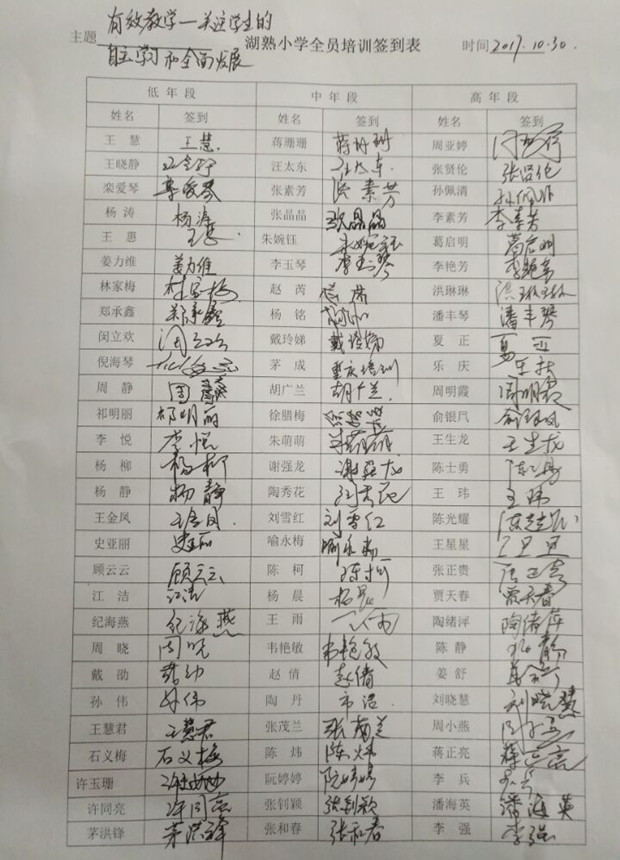 主题 有效教学—关注学生的 湖熟小学全员培训签到表 时间 2017.10.30.
自主学习和全面发展
低年段 中年段 高年段
姓名 签到 姓名 签到 姓名 签到
王慧 王慧 蒋珊珊 蒋珊珊 周亚婷
王晓静 汪太东 汪太东 张贤伦 张贤伦
栾爱琴 栾爱琴 张素芳 张素芳 孙佩清
杨涛 杨涛 张晶晶 张晶晶 李素芳 李素芳
王惠 王惠 朱婉钰 朱婉钰 葛启明 葛启明
姜力维 姜力维 李玉琴 李玉琴 李艳芳
林家梅 林家梅 赵芮 洪琳琳 洪琳琳
郑承鑫 郑承鑫 杨铭 潘丰琴 潘丰琴
闵立欢 戴玲娣 戴玲娣 夏正 夏正
倪海琴 茅成 重庆培训 乐庆
周静 周静 胡广兰 胡广兰 周明霞 周明霞
祁明丽 祁明丽 徐腊梅 俞银凤
李悦 李悦 朱萌萌 王生龙 王生龙
杨柳 杨柳 谢强龙 陈士勇
杨静 杨静 陶秀花 王玮 王玮
王金凤 刘雪红 刘雪红 陈光耀
史亚丽 喻永梅 王星星
顾云云 顾云云 陈柯 陈柯 张正贵
江洁 江洁 杨晨 杨晨 贾天春 贾天春
纪海燕 纪海燕 王雨 陶绪泙
周晓 周晓 韦艳敏 韦艳敏 陈静
戴劭 戴劭 赵倩 赵倩 姜舒
孙伟 孙伟 陶丹 刘晓慧 刘晓慧
王慧君 王慧君 张茂兰 周小燕
石义梅 石义梅 陈炜 陈炜 蒋正亮 蒋正亮
许玉珊 阮婷婷 阮婷婷 李兵
许同亮 许同亮 张钊颖 张钊颖 潘海英 潘海英
茅洪锋 茅洪锋 张和春 张和春 李强 李强